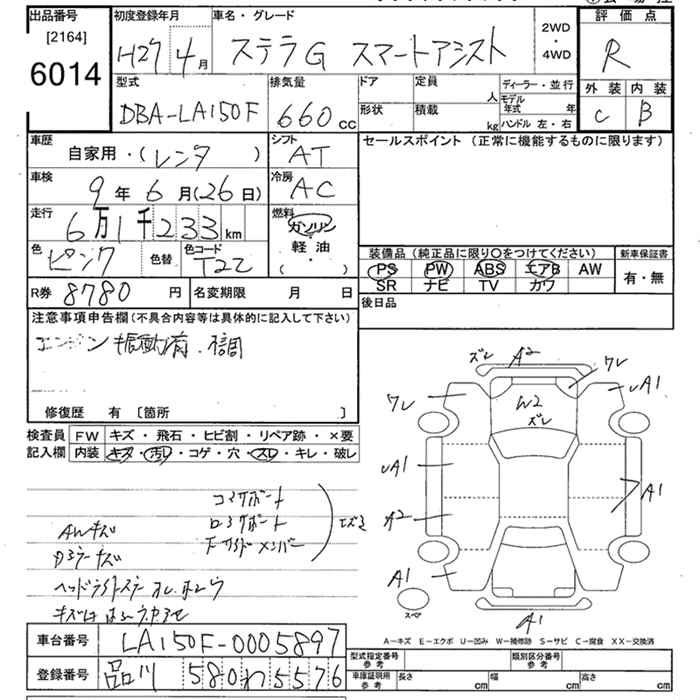 出品番号 初度登録年月 車名・グレード 評価点
[2164]
6014
H27 4月 ステラG スマートアシスト 2WD・4WD R
型式 排気量 ドア 定員 人 ディーラー・並行 外装 内装
DBA-LA150F 660cc 形状 積載 kg モデル年式 年 ハンドル 左・右 C B
車歴 自家用・(レンタ) シフト AT セールスポイント (正常に機能するものに限ります)
車検 9年6月(26日) 冷房 AC
走行 6万1千233km 燃料 ガソリン・軽油・( )
色 ピンク 色替 色コード T22
装備品(純正品に限り○をつけてください) 新車保証書
PS PW ABS エアB AW 有・無
SR ナビ TV カワ
R券 8780円 名変期限 月 日 後日品
注意事項申告欄(不具合内容等は具体的に記入して下さい)
エンジン振動有
修復歴 有 [箇所 ]
検査員 FW キズ・飛石・ヒビ割・リペア跡・×要
記入欄 内装 キズ・汚レ・コゲ・穴・スレ・キレ・破レ
コアサポート
AWキズ
ズレ A2 ワレ
ワレ W2 ズレ uA1
uA1 A1
A2
A1
スペア A1
A-キズ E-エクボ U-凹み W-補修跡 S-サビ C-腐食 XX-交換済
車台番号 LA150F-0005897
登録番号 品川 580わ5576
型式指定番号 参考 類別区分番号 参考
車庫証明用 参考 長さ cm 幅 cm 高さ cm